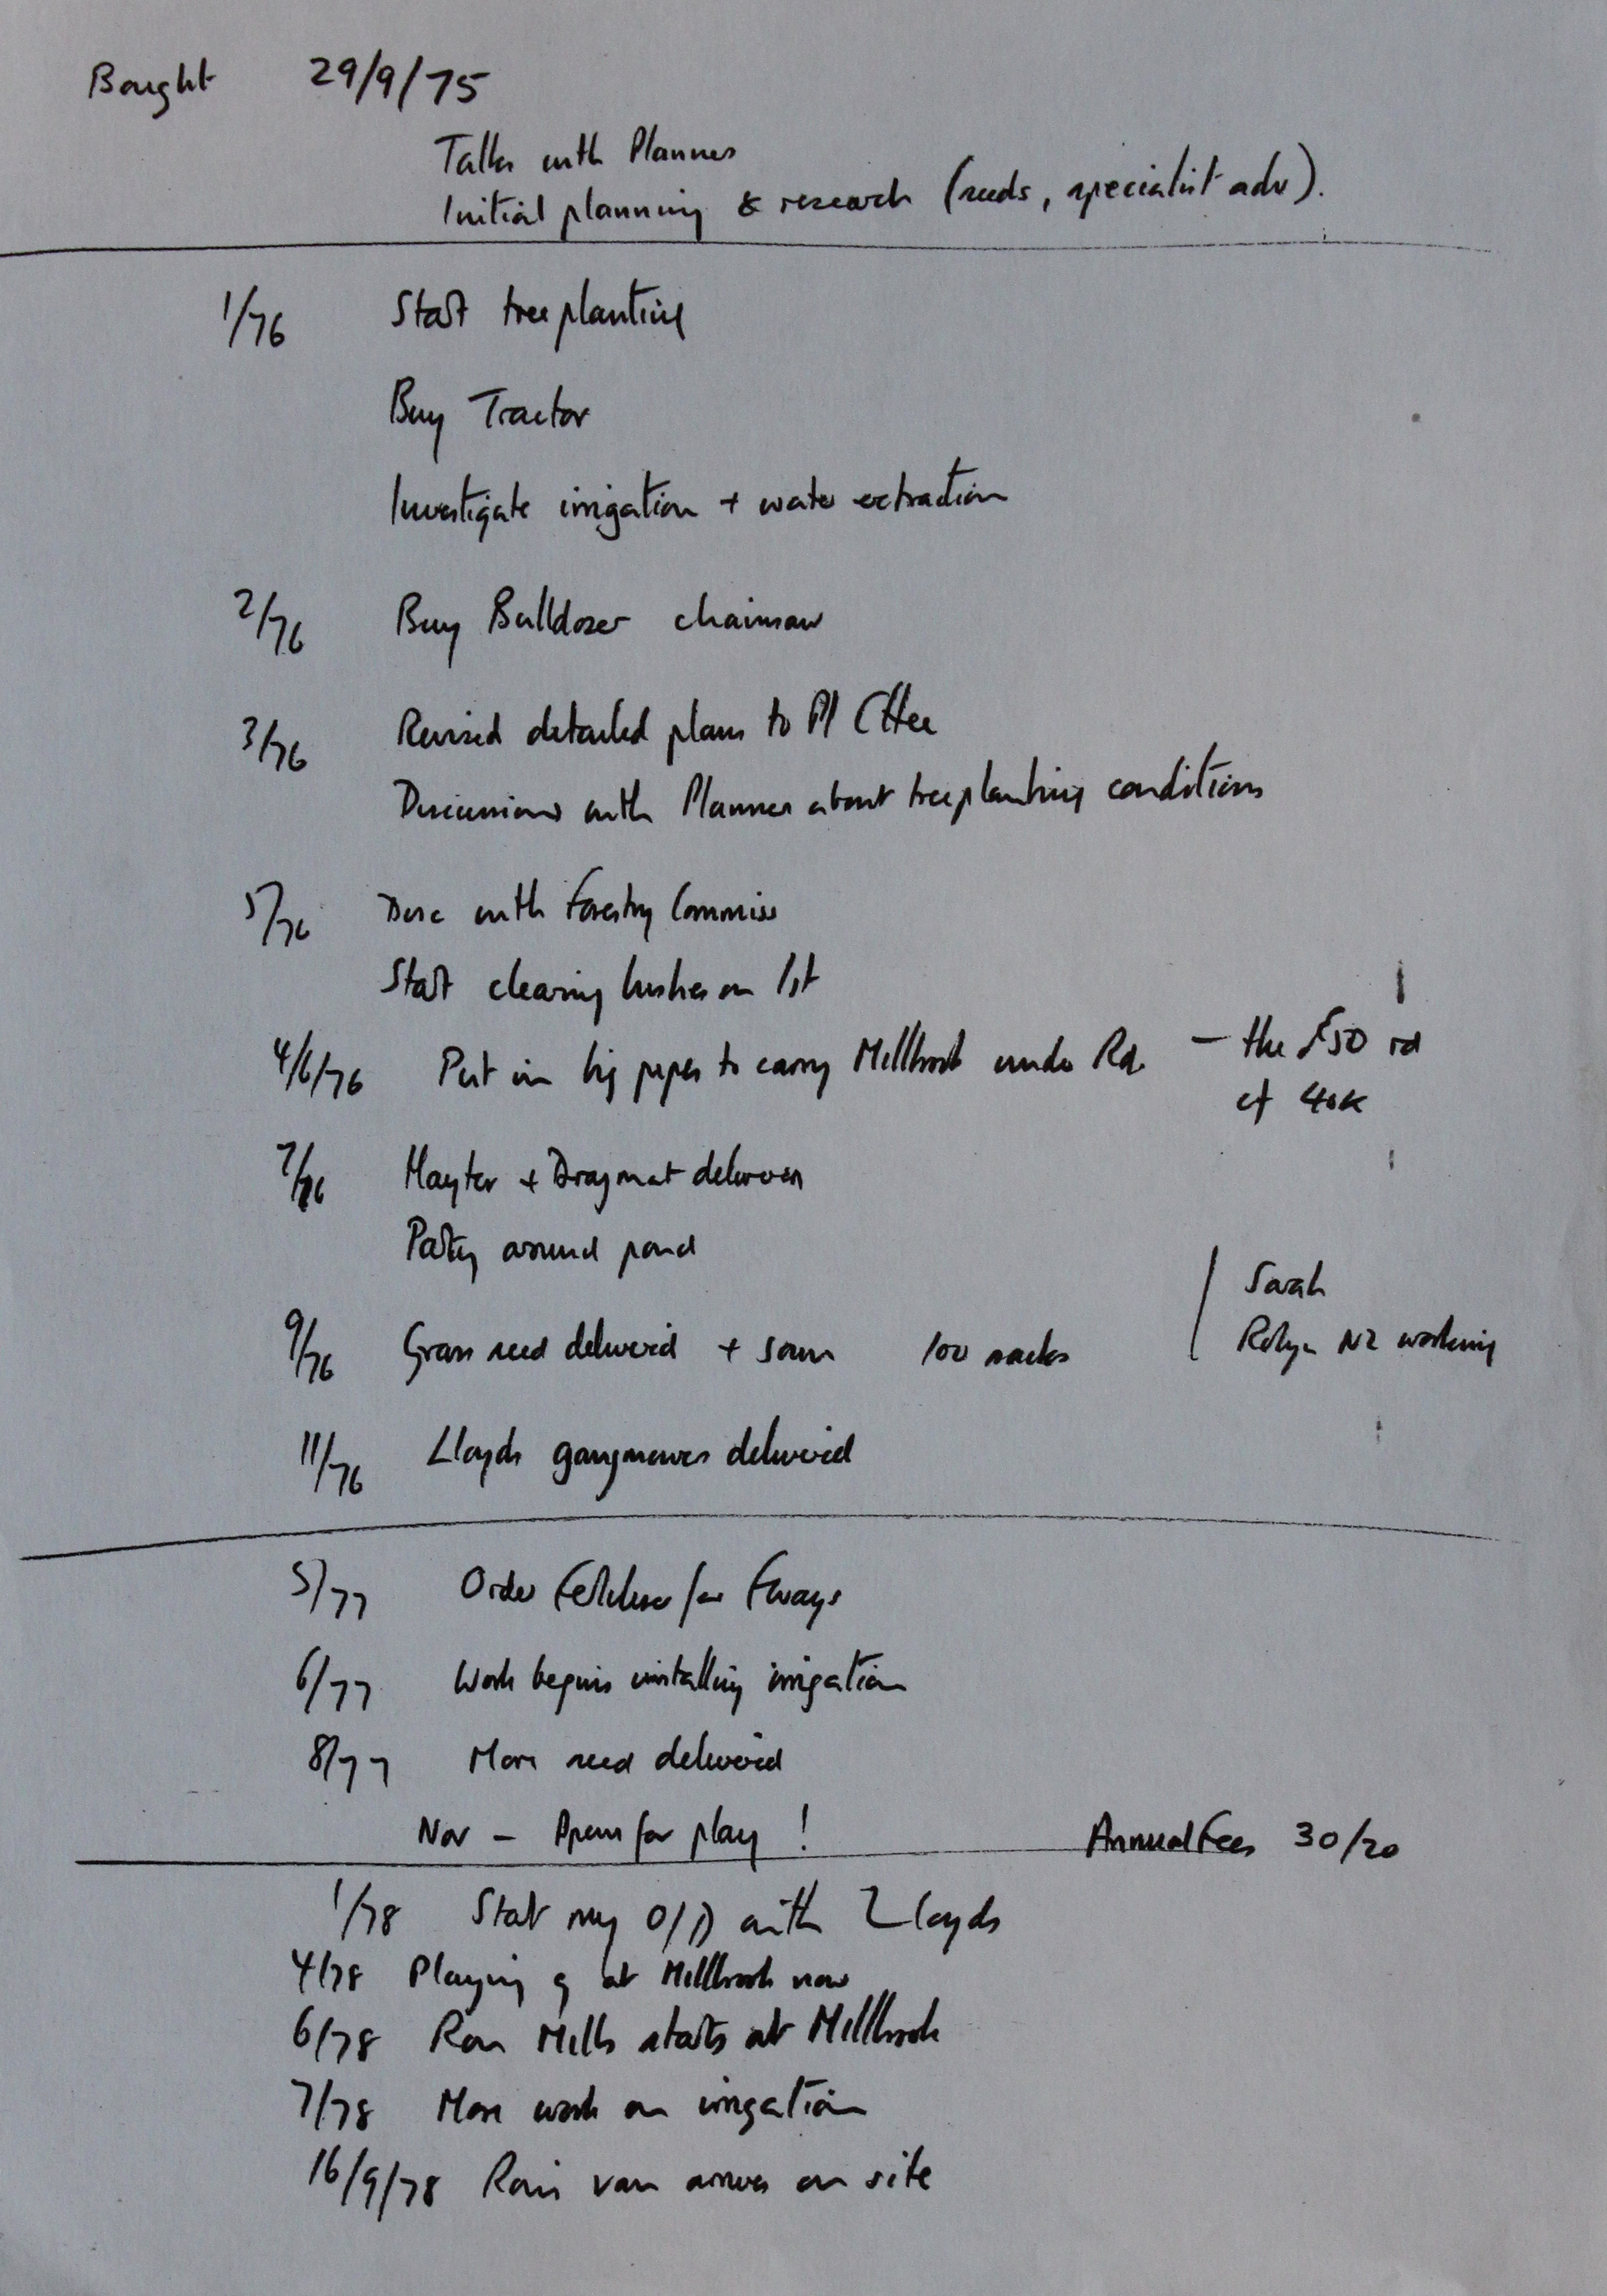 Bought 29/9/75
Talks with Planners
Initial planning & research (seeds, specialist adv).
1/76 Start treeplanting
Buy Tractor
Investigate irrigation + water extraction
2/76 Buy Bulldozer chainsaw
3/76 Revised detailed plans to Pl Cttee
Discussions with Planner about treeplanting conditions
5/76 Disc with Forestry Commiss
Start clearing bushes on 1st
4/6/76 Put in big pipes to carry Millbrook under Rd. — the £50 rd
cf 40K
7/76 Hayter + Dragmat delivered
Party around pond
Sarah
9/76 Grass seed delivered + sown 100 sacks Robyn NZ working
11/76 Lloyds gangmowers delivered
5/77 Order Fertiliser for Fways
6/77 Work begins installing irrigation
8/77 More seed delivered
Nov — Open for play ! Annual Fees 30/20
1/78 Start my O/D with Lloyds
4/78 Playing g at Millbrook now
6/78 Ron Mills starts at Millbrook
7/78 More work on irrigation
16/9/78 Ron's van arrives on site